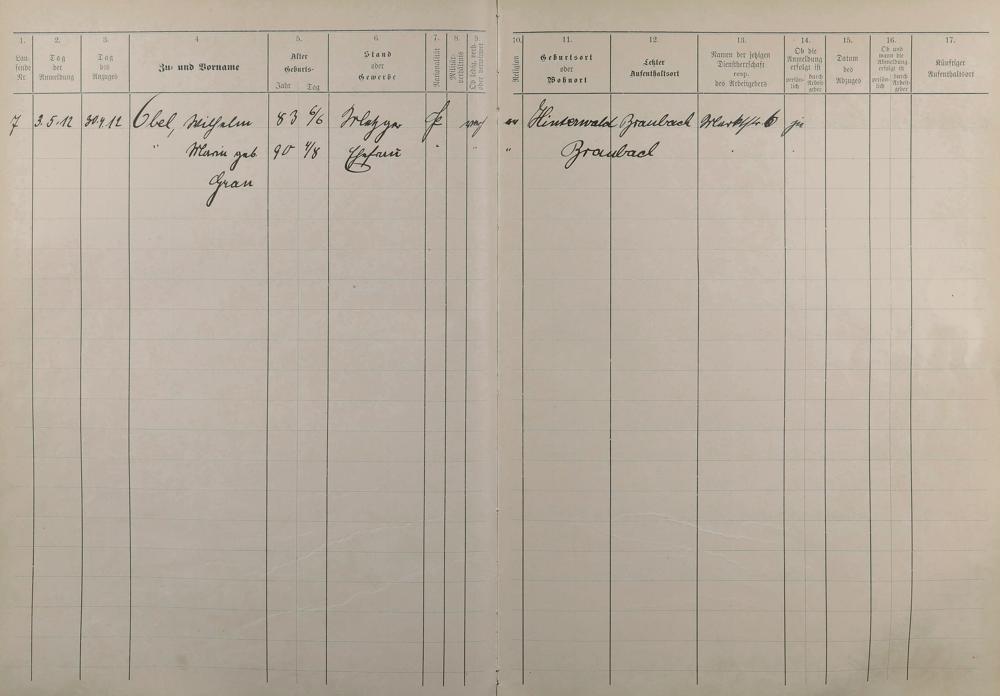 1. 2. 3. 4 5. 6. 7. 8. 9. 10. 11. 12. 13. 14. 15. 16. 17.
Lau-
fende
Nr.
Tag
der
Anmeldung
Tag
des
Anzuges
Zu- und Vorname
Alter
Geburts-
Jahr Tag
Stand
oder
Gewerbe
Nationalität
Militär-
verhältnis
Ob ledig, verh.
oder verwitwet
Religion
Geburtsort
oder
Wohnort
Letzter
Aufenthaltsort
Namen der jetzigen
Dienstherrschaft
resp.
des Arbeitgebers
Ob die
Anmeldung
erfolgt ist
persön-
lich
durch
Arbeit-
geber
Datum
des
Abzuges
Ob und
wann die
Abmeldung
erfolgt ist
persön-
lich
durch
Arbeit-
geber
Künftiger
Aufenthaltsort
7 3.5.12 30.4.12 Obel, Wilhelm 83 6/6 Metzger P. verh ev Hinterwald Braubach Marktstr 6 ja
" Maria geb 90 4/8 Ehefrau " " " Braubach " "
Grau